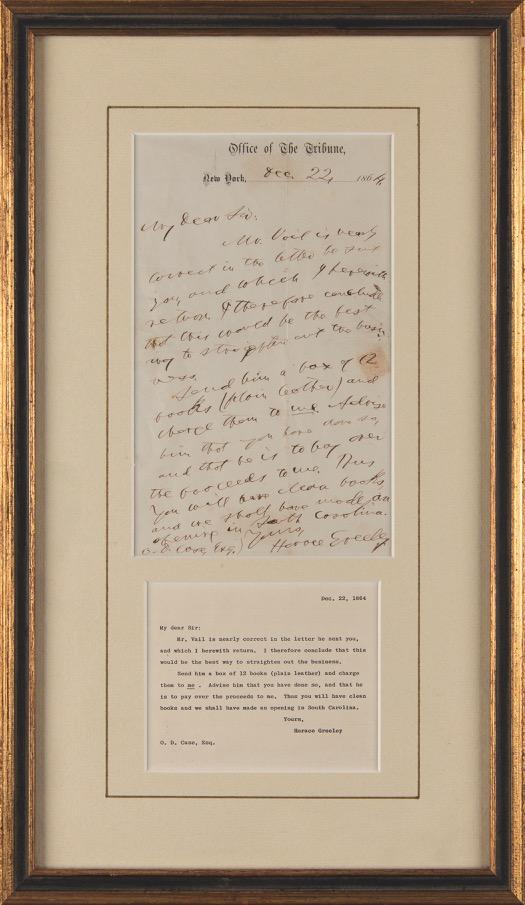 Office of The Tribune,
New York, Dec. 22, 1864.
My dear Sir:
Mr. Vail is nearly
correct in the letter he sent
you, and which I herewith
return. I therefore conclude
that this would be the best
way to straighten out the busi-
ness.
Send him a box of 12
books (plain leather) and
charge them to me. Advise
him that you have done so,
and that he is to pay over
the proceeds to me. Thus
you will have clean books,
and we shall have made an
opening in South Carolina.
Yours,
O. D. Case, Esq. Horace Greeley
Dec. 22, 1864
My dear Sir:
Mr. Vail is nearly correct in the letter he sent you,
and which I herewith return. I therefore conclude that this
would be the best way to straighten out the business.
Send him a box of 12 books (plain leather) and charge
them to me . Advise him that you have done so, and that he
is to pay over the proceeds to me. Thus you will have clean
books and we shall have made an opening in South Carolina.
Yours,
Horace Greeley
O. D. Case, Esq.